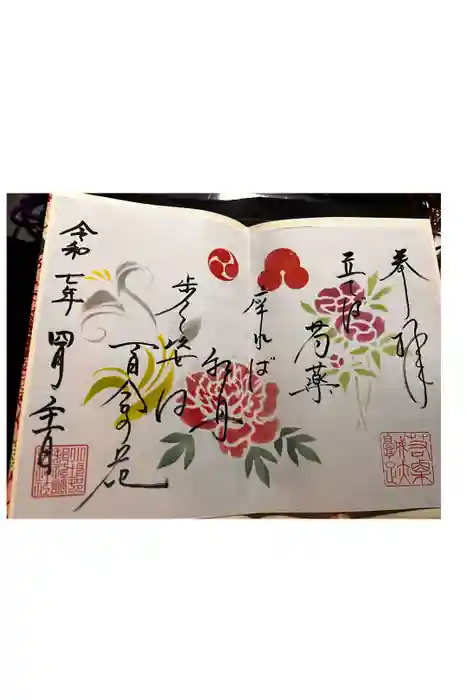 奉拝
立てば
芍薬
座れば
牡丹
歩く姿は
百合の花
令和七年 四月